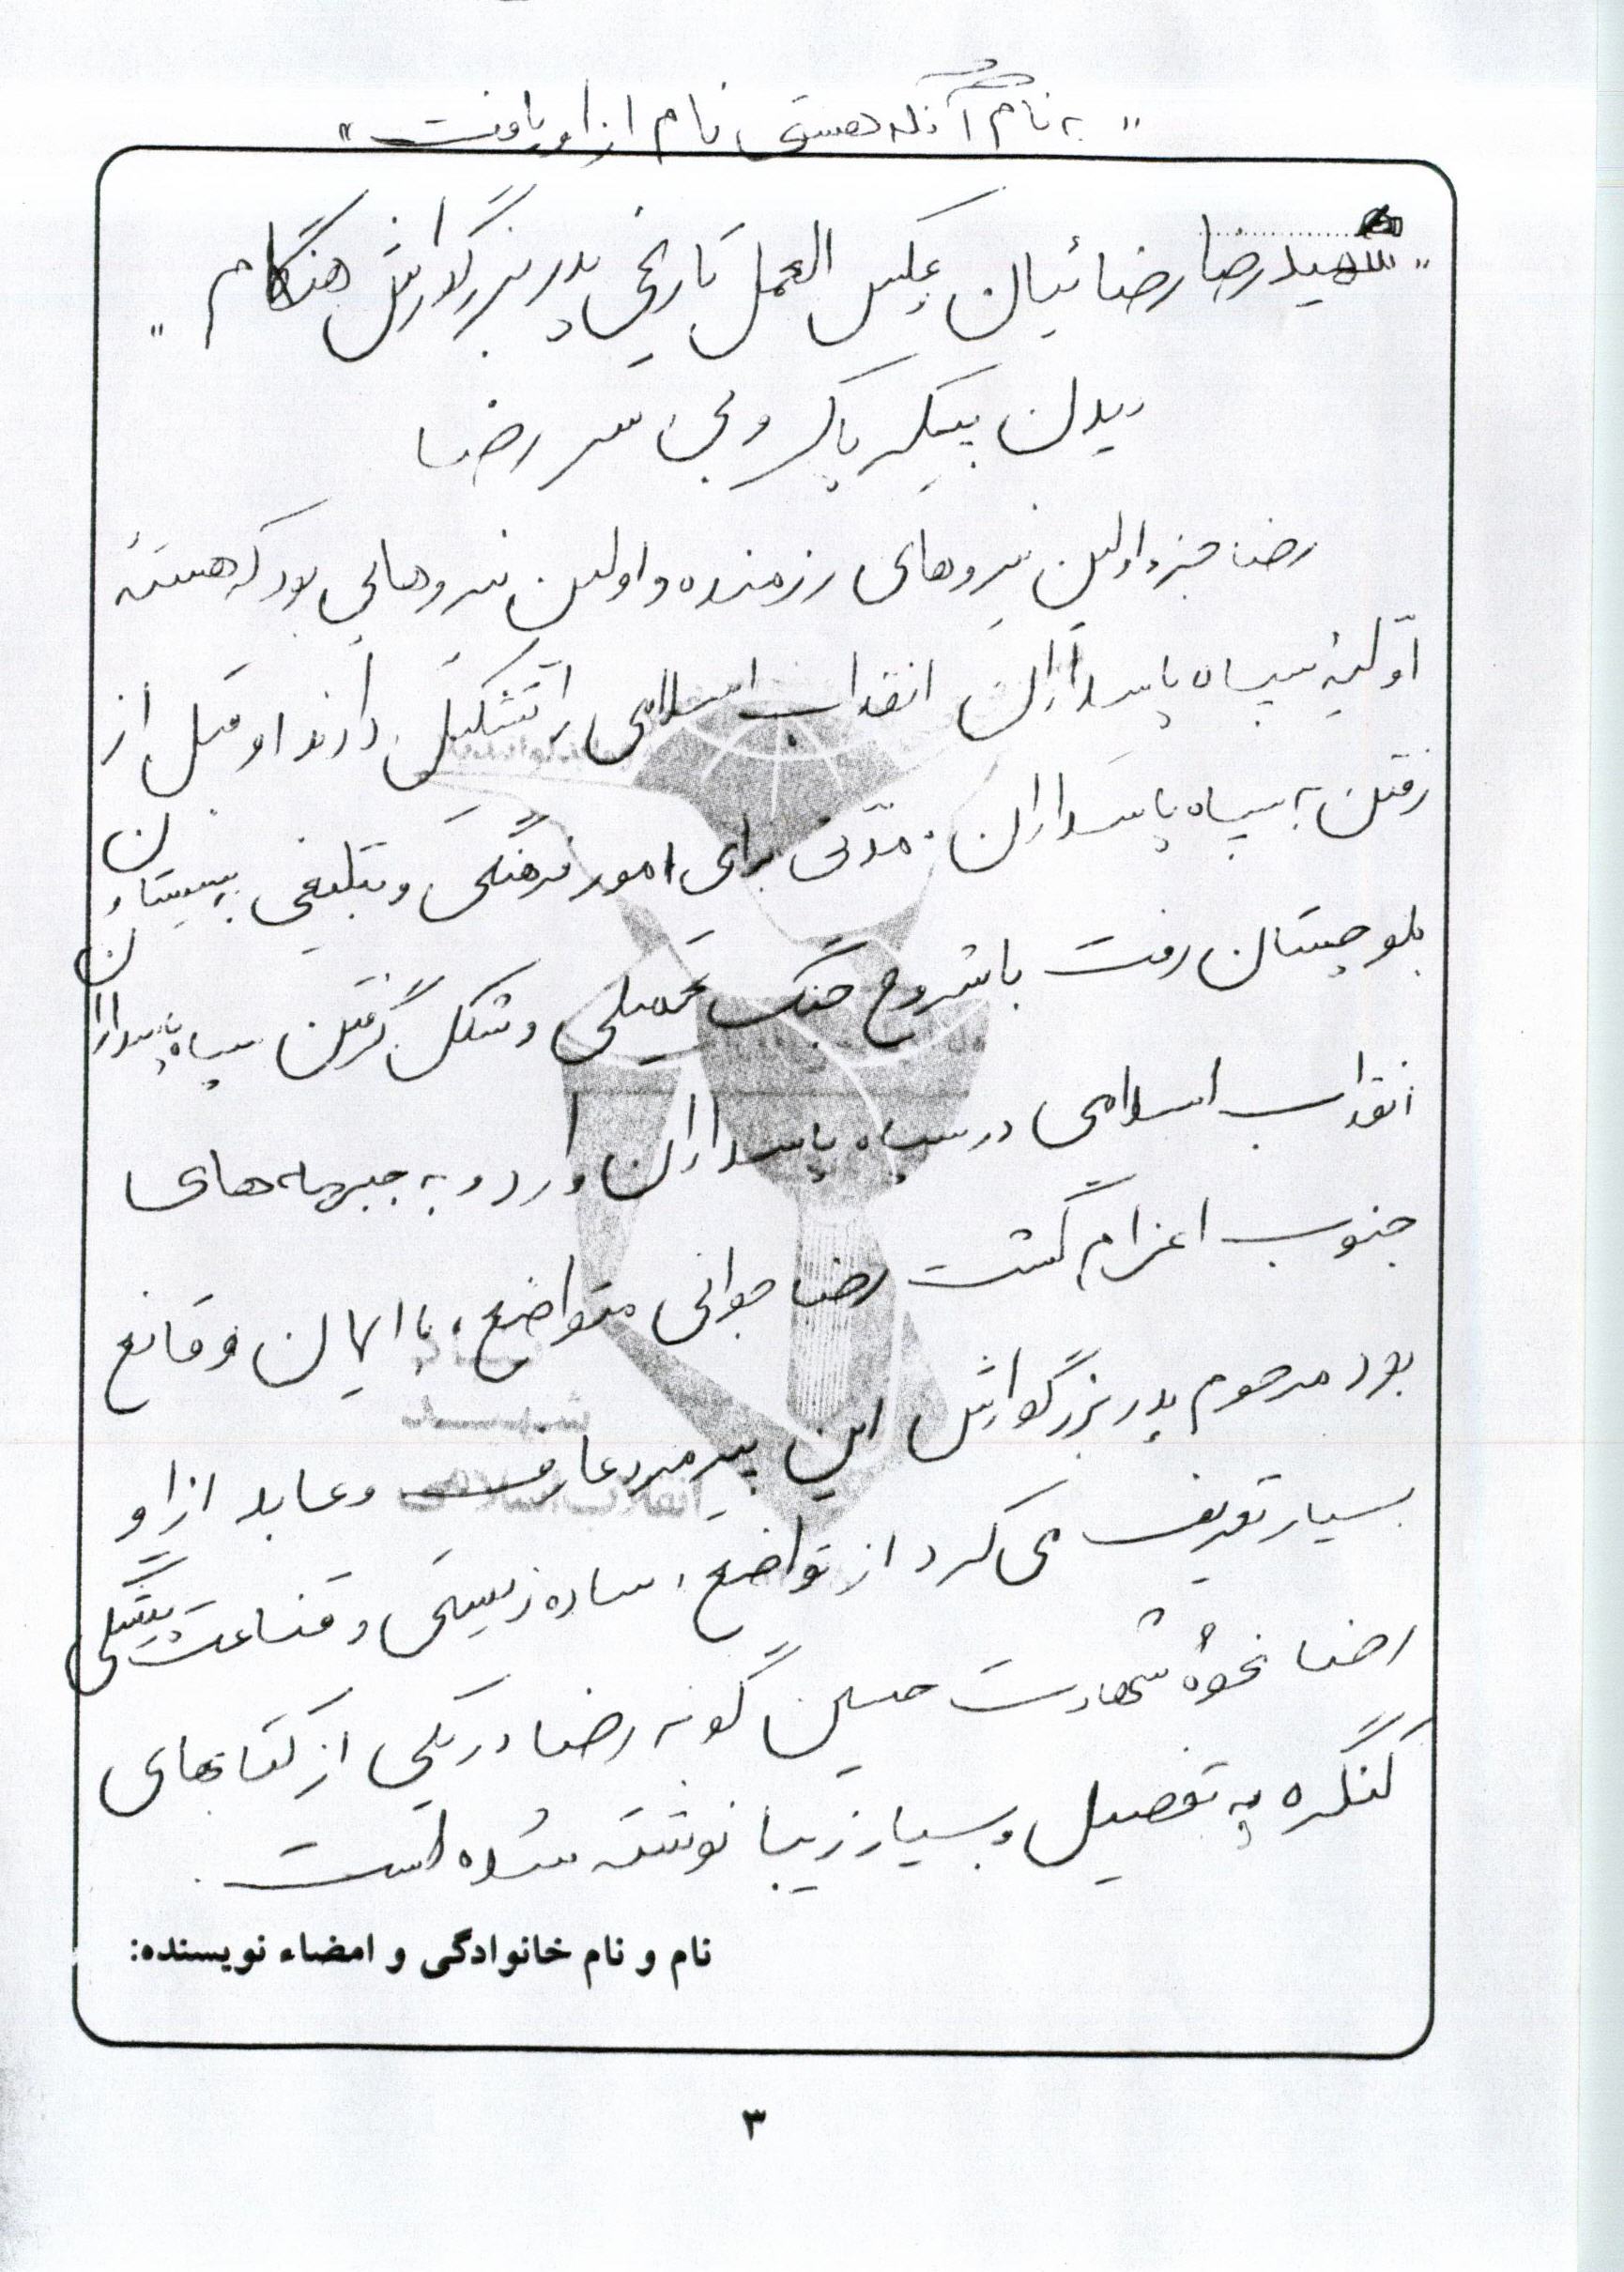 "به نام آنکه هستی نام از او یافت"
"شهید رضا رضائیان عکس العمل تاریخی پدر بزرگوارش هنگام"
دیدن پیکر پاک و بی سر رضا
رضا جزء اولین نیروهای رزمنده و اولین نیروهایی بود که هسته
اوّلیهٔ سپاه پاسداران انقلاب اسلامی را تشکیل دادند او قبل از
رفتن به سپاه پاسداران مدّتی برای امور فرهنگی و تبلیغی به سیستان و
بلوچستان رفت با شروع جنگ تحمیلی و شکل گرفتن سپاه پاسداران
انقلاب اسلامی در سپاه پاسداران وارد و به جبهه های
جنوب اعزام گشت رضا جوانی متواضع، با ایمان و قانع
بود مرحوم پدر بزرگوارش این پیرمرد عارف و عابد از او
بسیار تعریف می کرد از تواضع، ساده زیستی و قناعت پیشگی
رضا نحوهٔ شهادت حسین گونه رضا در یکی از کتابهای
کنگره به تفصیل و بسیار زیبا نوشته شده است.
نام و نام خانوادگی و امضاء نویسنده:
۳